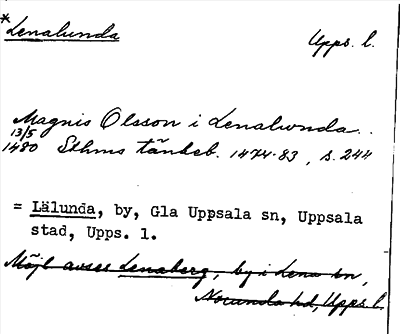 *Lenalunda
Upps. l.
Magnis Olsson i Lenalunda..
13/5
1480 Sthms tänkeb. 1474-83, s. 244
= Lälunda, by, Gla Uppsala sn, Uppsala
stad, Upps. l.
Möjl. avses Lenaberg, by i Lena sn,
Norunda hd, Upps. l.